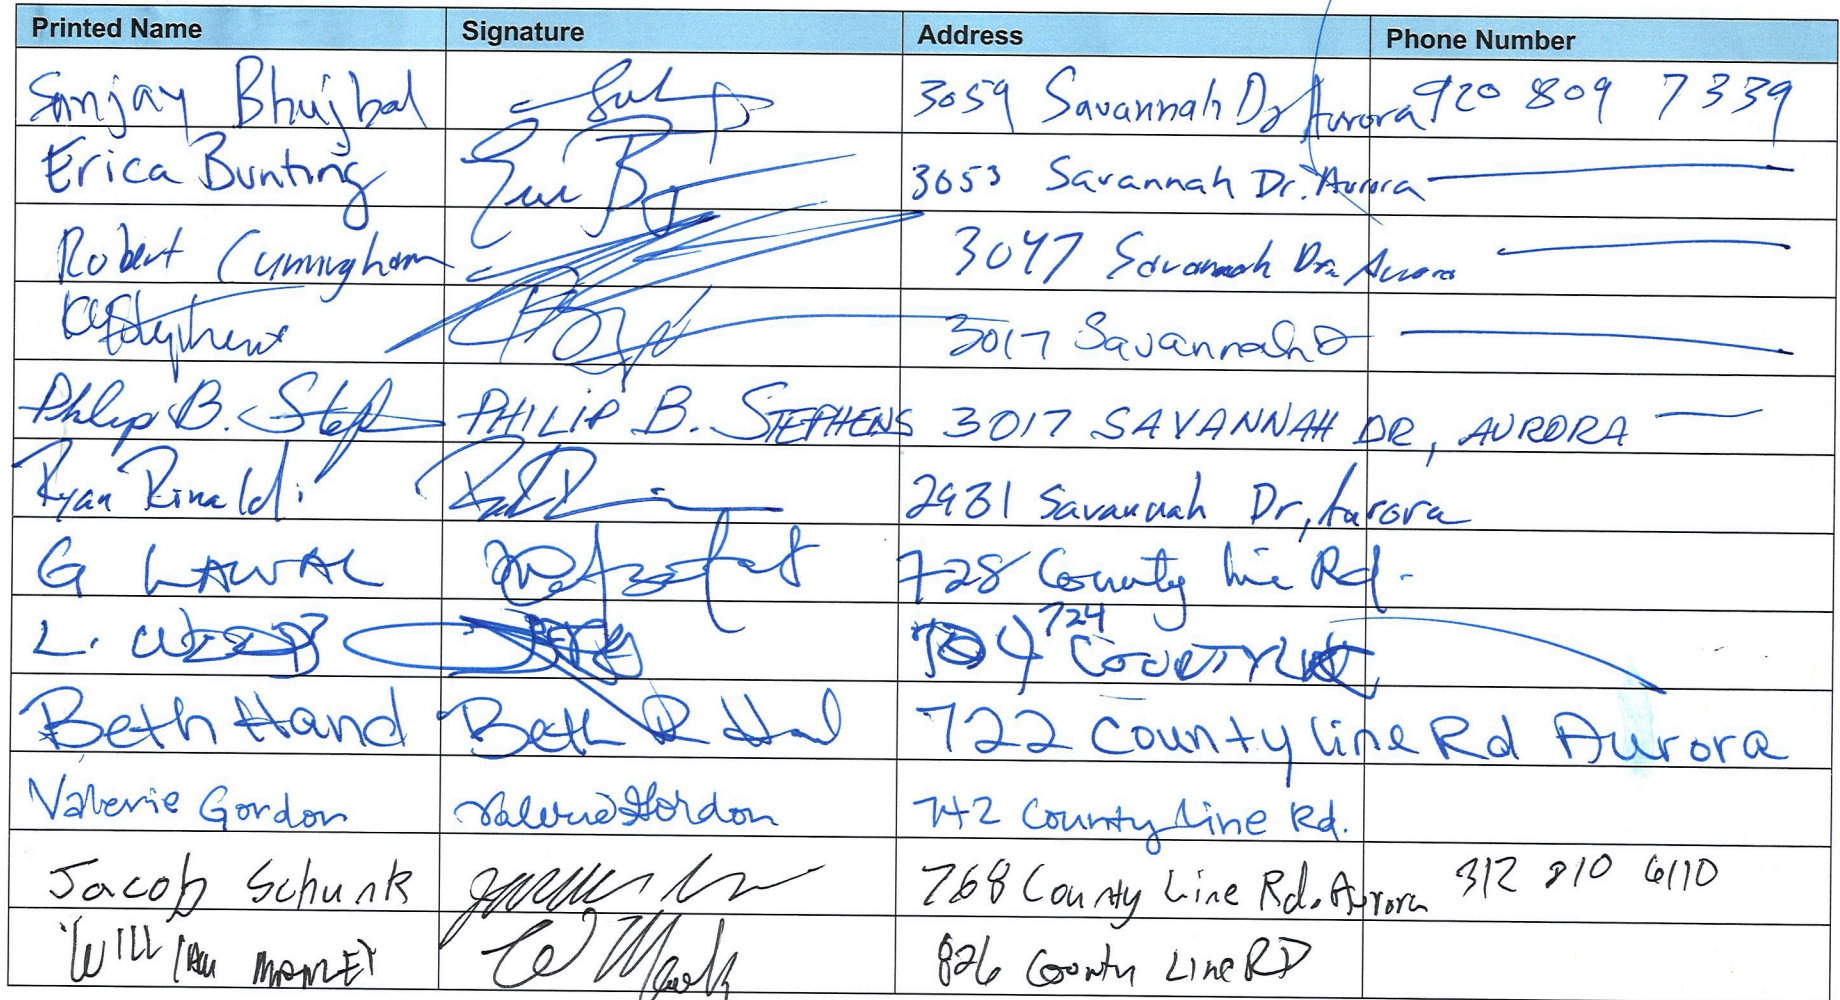 Printed Name Signature Address Phone Number
Sanjay Bhujbal 3059 Savannah Dr Aurora 920 809 7339
Erica Bunting 3053 Savannah Dr. Aurora
Robert Cunningham 3047 Savannah Dr. Aurora
3017 Savannah D
Philip B. PHILIP B. STEPHENS 3017 SAVANNAH DR, AURORA
Ryan Rinaldi 2931 Savannah Dr, Aurora
G LAWAL 728 County Line Rd.
L. 724
Beth Hand Beth R Hand 722 County line Rd Aurora
Valerie Gordon Valerie Gordon 742 County Line Rd.
Jacob Schunk 768 County Line Rd. Aurora 312 810 6110
WILLIAM 826 County Line RD